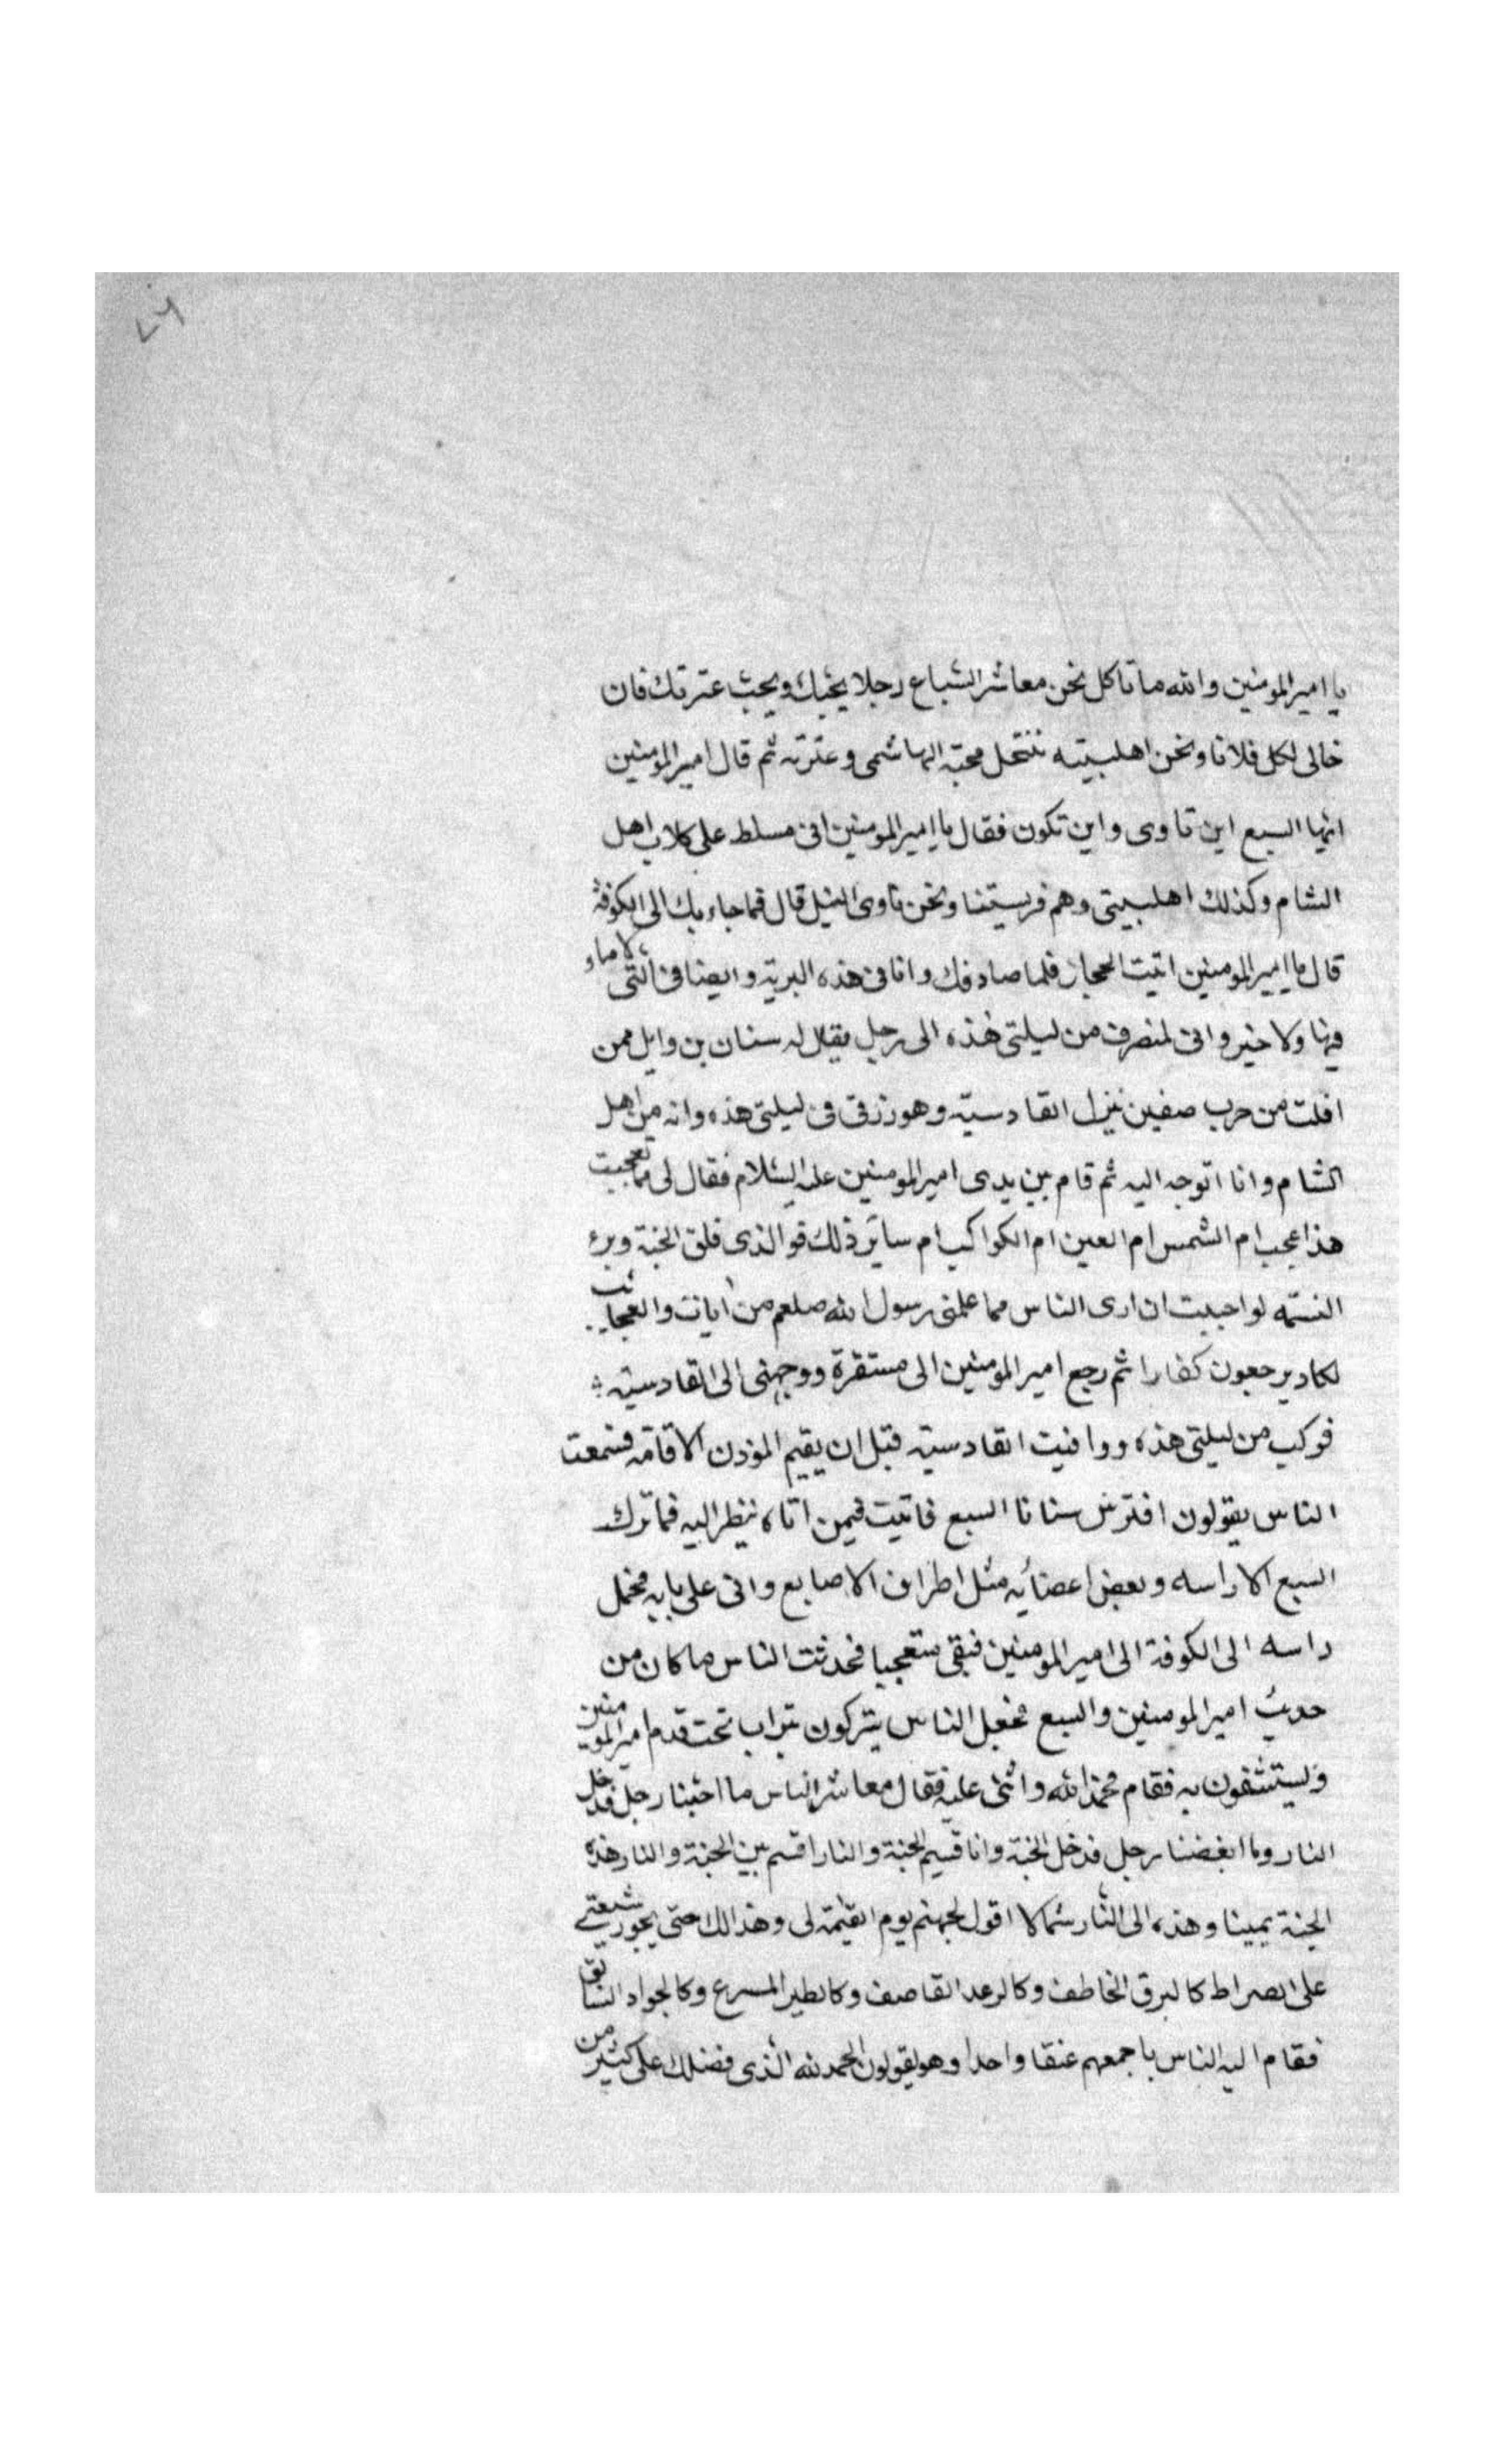 ۷۶
يا امير المومنين والله ما تاكل نحن معاشر السباع رجلا يحبك ويحب عترتك فان
خالى اكل فلانا ونحن اهلبيته ننتحل محبة الهاشمى وعترته ثم قال امير المومنين
ايها السبع اين تاوى واين تكون فقال يا امير المومنين انى مسلط على كلاب اهل
الشام وكذلك اهلبيتى وهم فريستنا ونحن ناوى النيل قال فما جاء بك الى الكوفة
قال يا امير المومنين اتيت الحجاز فلما صادفك وانا فى هذه البرية و فى التى لا ماء
فيها ولا خير وانى لمنصرف من ليلتى هذه الى رجل يقال له سنان بن وايل ممن
افلت من حرب صفين نيزل القادسية وهو رزقى فى ليلتى هذه وانه من اهل
الشام وانا اتوجه اليه ثم قام بين يدى امير المومنين عليه السلام فقال لى مما تعجبت
هذا عجب ام الشمس ام العين ام الكواكب ام ساير ذلك فوالذى فلق الحبة وبرء
النسمه لو احببت ان ارى الناس مما علمنى رسول الله صلعم من ايات والعجايب
لكاد يرجعون كفارا ثم رجع امير المومنين الى مستقرة ووجهنى الى القادسية
فركب من ليلتى هذه ووافيت القادسية قبل ان يقيم الموذن الاقامة فسمعت
الناس يقولون افترس سنانا السبع فاتيت فيمن اتاه ينظر اليه فما ترك
السبع الا راسه وبعض اعضائه مثل اطراف الاصابع وانى على بابه فحمل
راسه الى الكوفة الى امير المومنين فبقى متعجبا فحدثت الناس ما كان من
حديث امير المومنين والسبع فجعل الناس يتبركون بتراب تحت قدم امير المومنين
ويستشفون به فقام فحمد الله واثنى عليه فقال معاشر الناس ما احبنا رجل فدخل
النار وما ابغضنا رجل فدخل الجنة وانا قسيم الجنة والنار اقسم بين الجنة والنار هذه
الجنة يمينا وهذه الى النار شمالا اقول لجهنم يوم القيمة لى وهذا لك حتى يجوز شيعتى
على الصراط كالبرق الخاطف وكالرعد القاصف وكالطير المسرع وكالجواد السابق
فقام اليه الناس باجمعهم عنقا واحدا وهو يقولون الحمد لله الذى فضلك على كثير من